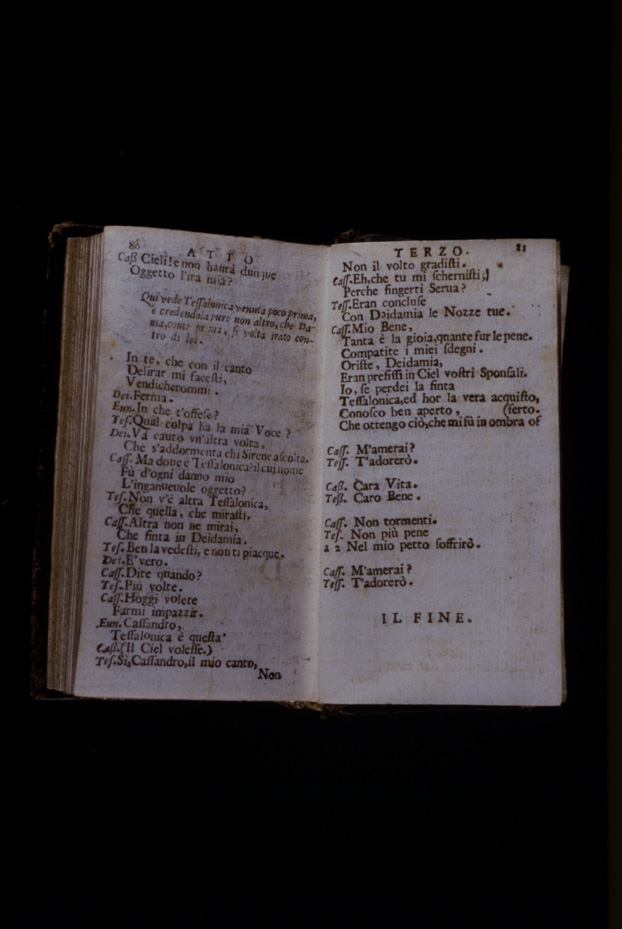 80
ATTO
Caſſ Cieli! e non haurà dunque
Oggetto l'ira mia?
Qui vede Teſſalonica venuta poco prima,
e credendola pure non altro, che Da-
mia, come prima, ſi volta irato con-
tro di lei.
In te, che con il canto
Delirar mi faceſti,
Vendicherommi.
Dei. Ferma.
Eun. In che t'offeſe?
Teſ. Qual colpa ha la mia Voce?
Dei. Và cauto vn'altra volta,
Che s'addormenta chi Sirene aſcolta.
Caſſ. Ma doue è Teſſalonica? il cui nome
Fù d'ogni danno mio
L'inganneuole oggetto?
Teſ. Non v'è altra Teſſalonica,
Che quella, che miraſti.
Caſſ. Altra non ne mirai,
Che finta in Deidamia.
Teſ. Ben la vedeſti, e non ti piacque.
Dei. E' vero.
Caſſ. Dite quando?
Teſ. Più volte.
Caſſ. Hoggi volete
Farmi impazzir.
Eun. Caſſandro,
Teſſalonica è queſta'
Caß. (Il Ciel voleſſe.)
Teſ. Sì, Caſſandro, il mio canto,
Non
TERZO. 81
Non il volto gradiſti.
Caſſ. Eh, che tu mi ſcherniſti;
Perche fingerti Serua?
Teſſ. Eran concluſe
Con Deidamia le Nozze tue.
Caſſ. Mio Bene,
Tanta è la gioia, quante fur le pene.
Compatite i miei ſdegni.
Oriſte, Deidamia,
Eran prefiſſi in Ciel voſtri Sponſali.
Io, ſe perdei la finta
Teſſalonica, ed hor la vera acquiſto,
Conoſco ben aperto, (ferto.
Che ottengo ciò, che mi fù in ombra of
Caſſ. M'amerai?
Teſſ. T'adorerò.
Caß. Cara Vita.
Teß. Caro Bene.
Caſſ. Non tormenti.
Teſ. Non più pene
a 2 Nel mio petto ſoffrirò.
Caſſ. M'amerai?
Teſſ. T'adorerò.
IL FINE.